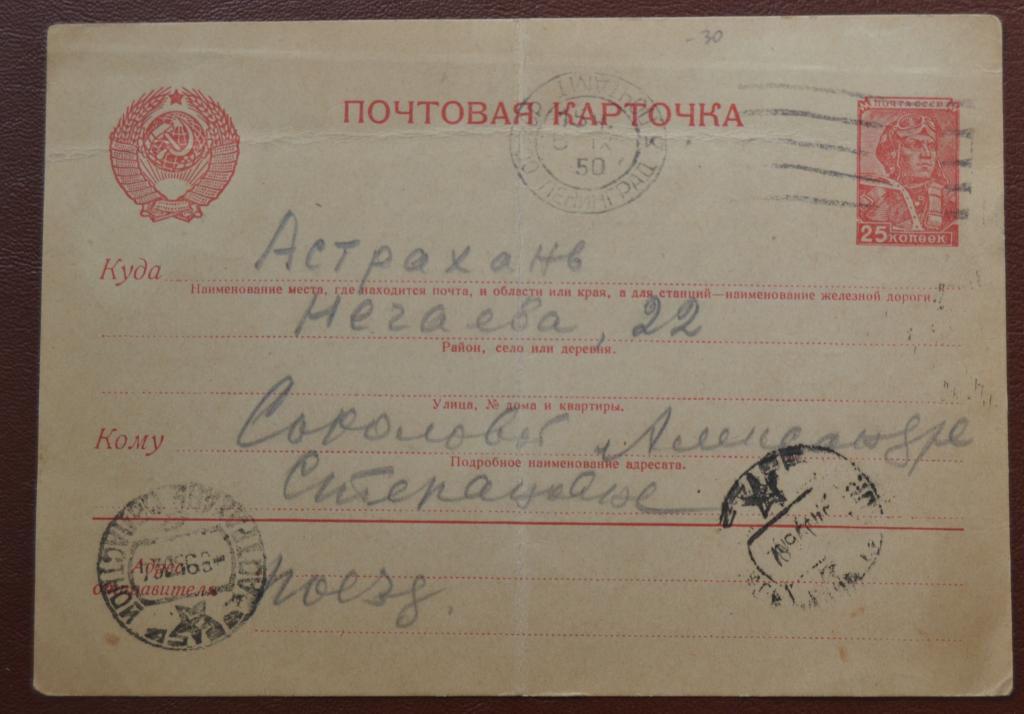 -30
ПОЧТОВАЯ КАРТОЧКА
ПОЧТА СССР
25 КОПЕЕК
ЛЕНИНГРАД
ПОЧТАМТ
IX
50
Куда Астрахань
Наименование места, где находится почта, и области или края, а для станций—наименование железной дороги.
Нечаева, 22
Район, село или деревня.
Улица, № дома и квартиры.
Кому Соколовой Александре
Подробное наименование адресата.
Степановне
Адрес отправителя
поезд.